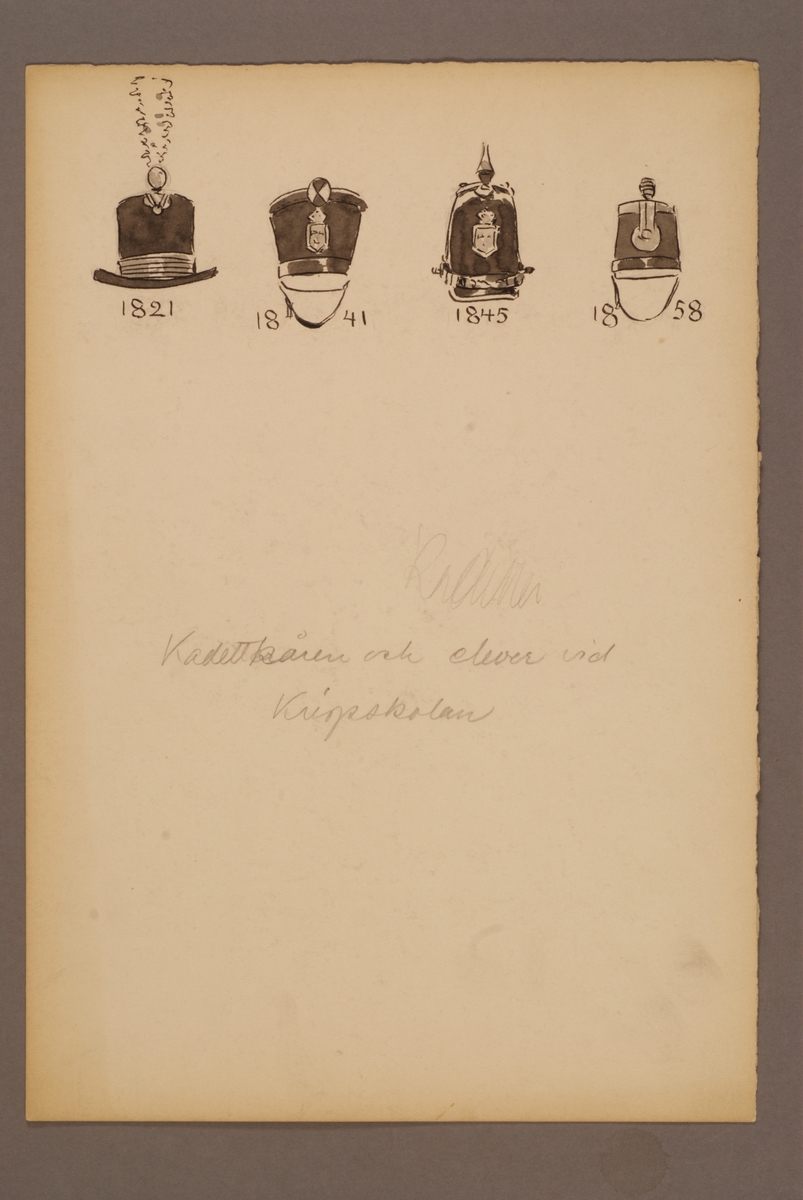 1821
18 41
1845
18 58
Kadettkåren och elever vid
Krigsskolan